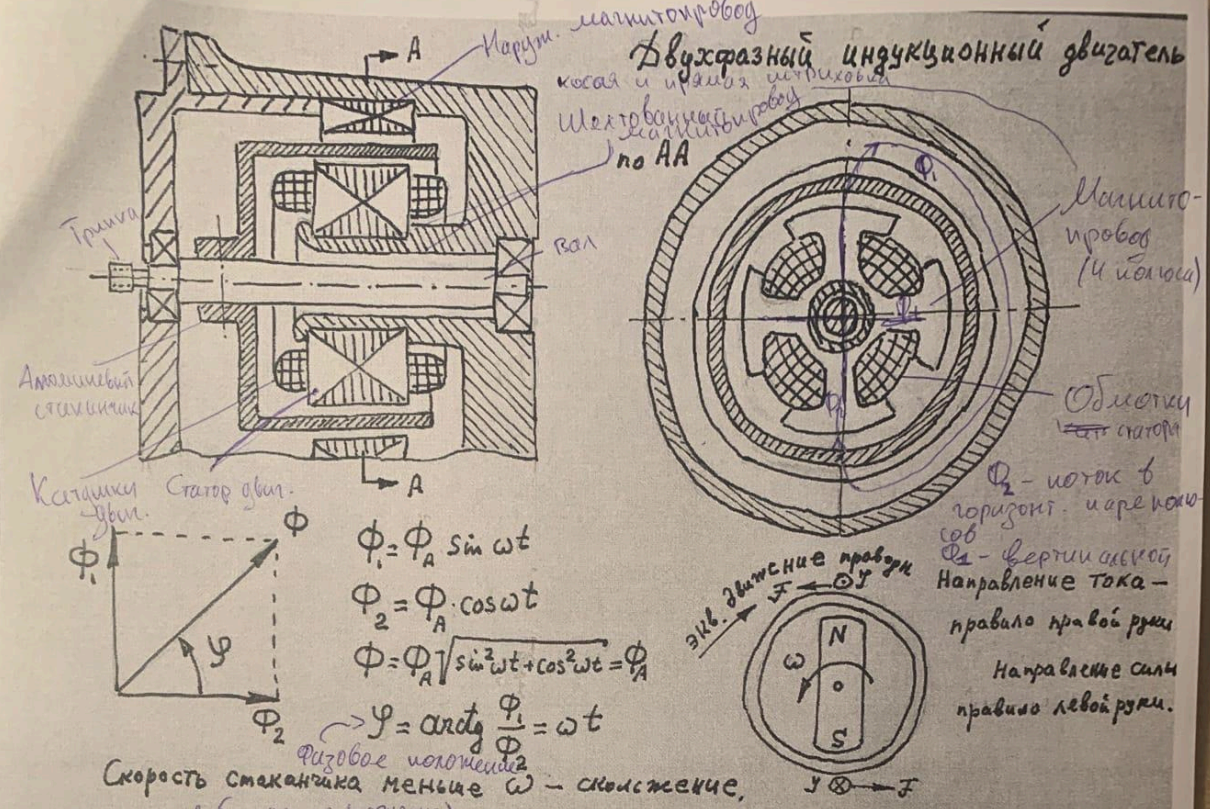 Наруж. магнитопровод
Двухфазный индукционный двигатель
косая и прямая штриховка
Шихтованный
магнитопровод
А
по АА
Магнито-
провод
(4 полюса)
Вал
Алюминиевый
стаканчик
Катушки
двиг.
Статор двиг.
А
Обмотки
статора
Ф₁
Ф₂ - поток в
горизонт. паре полю-
сов
Ф₁ - вертикальной
Ф₁
Ф
φ
Ф₂
Ф₁ = Ф_А sin ωt
Ф₂ = Ф_А · cos ωt
Ф = Ф_А √(sin²ωt + cos²ωt) = Ф_А
φ = arctg Ф₁/Ф₂ = ωt
Фазовое положение
экв. движение проводн
F
N
ω
S
F
Направление тока –
правило правой руки
Направление силы
правило левой руки.
Скорость стаканчика меньше ω – скольжение,